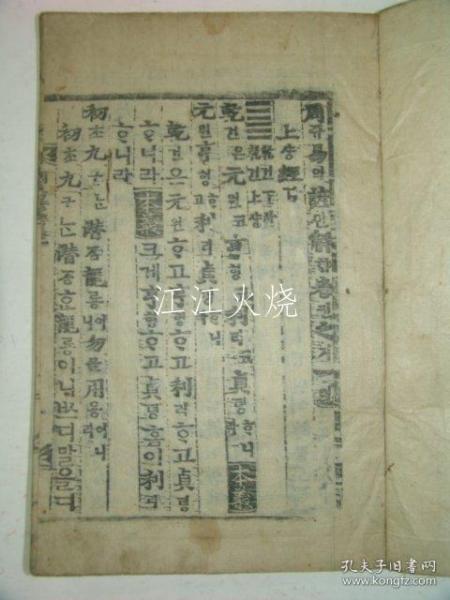 周쥬易역諺언解
上샹經경
乾건下하
乾건上샹
乾건은元원코亨형코利리코貞뎡ᄒᆞ니라 本義
元원亨형ᄒᆞ고利리貞뎡ᄒᆞ니
乾건은元원ᄒᆞ고亨형ᄒᆞ고利리ᄒᆞ고貞뎡
ᄒᆞ니라 本義 크게亨형ᄒᆞ고貞뎡홈이利리
ᄒᆞ니라
初초九구ᄂᆞᆫ潛ᄌᆞᆷ龍룡이니勿믈用용이니라
初초九구ᄂᆞᆫ潛ᄌᆞᆷᄒᆞᆫ龍룡이니ᄡᅳ디말올디
江江火烧
孔夫子旧书网
www.kongfz.com